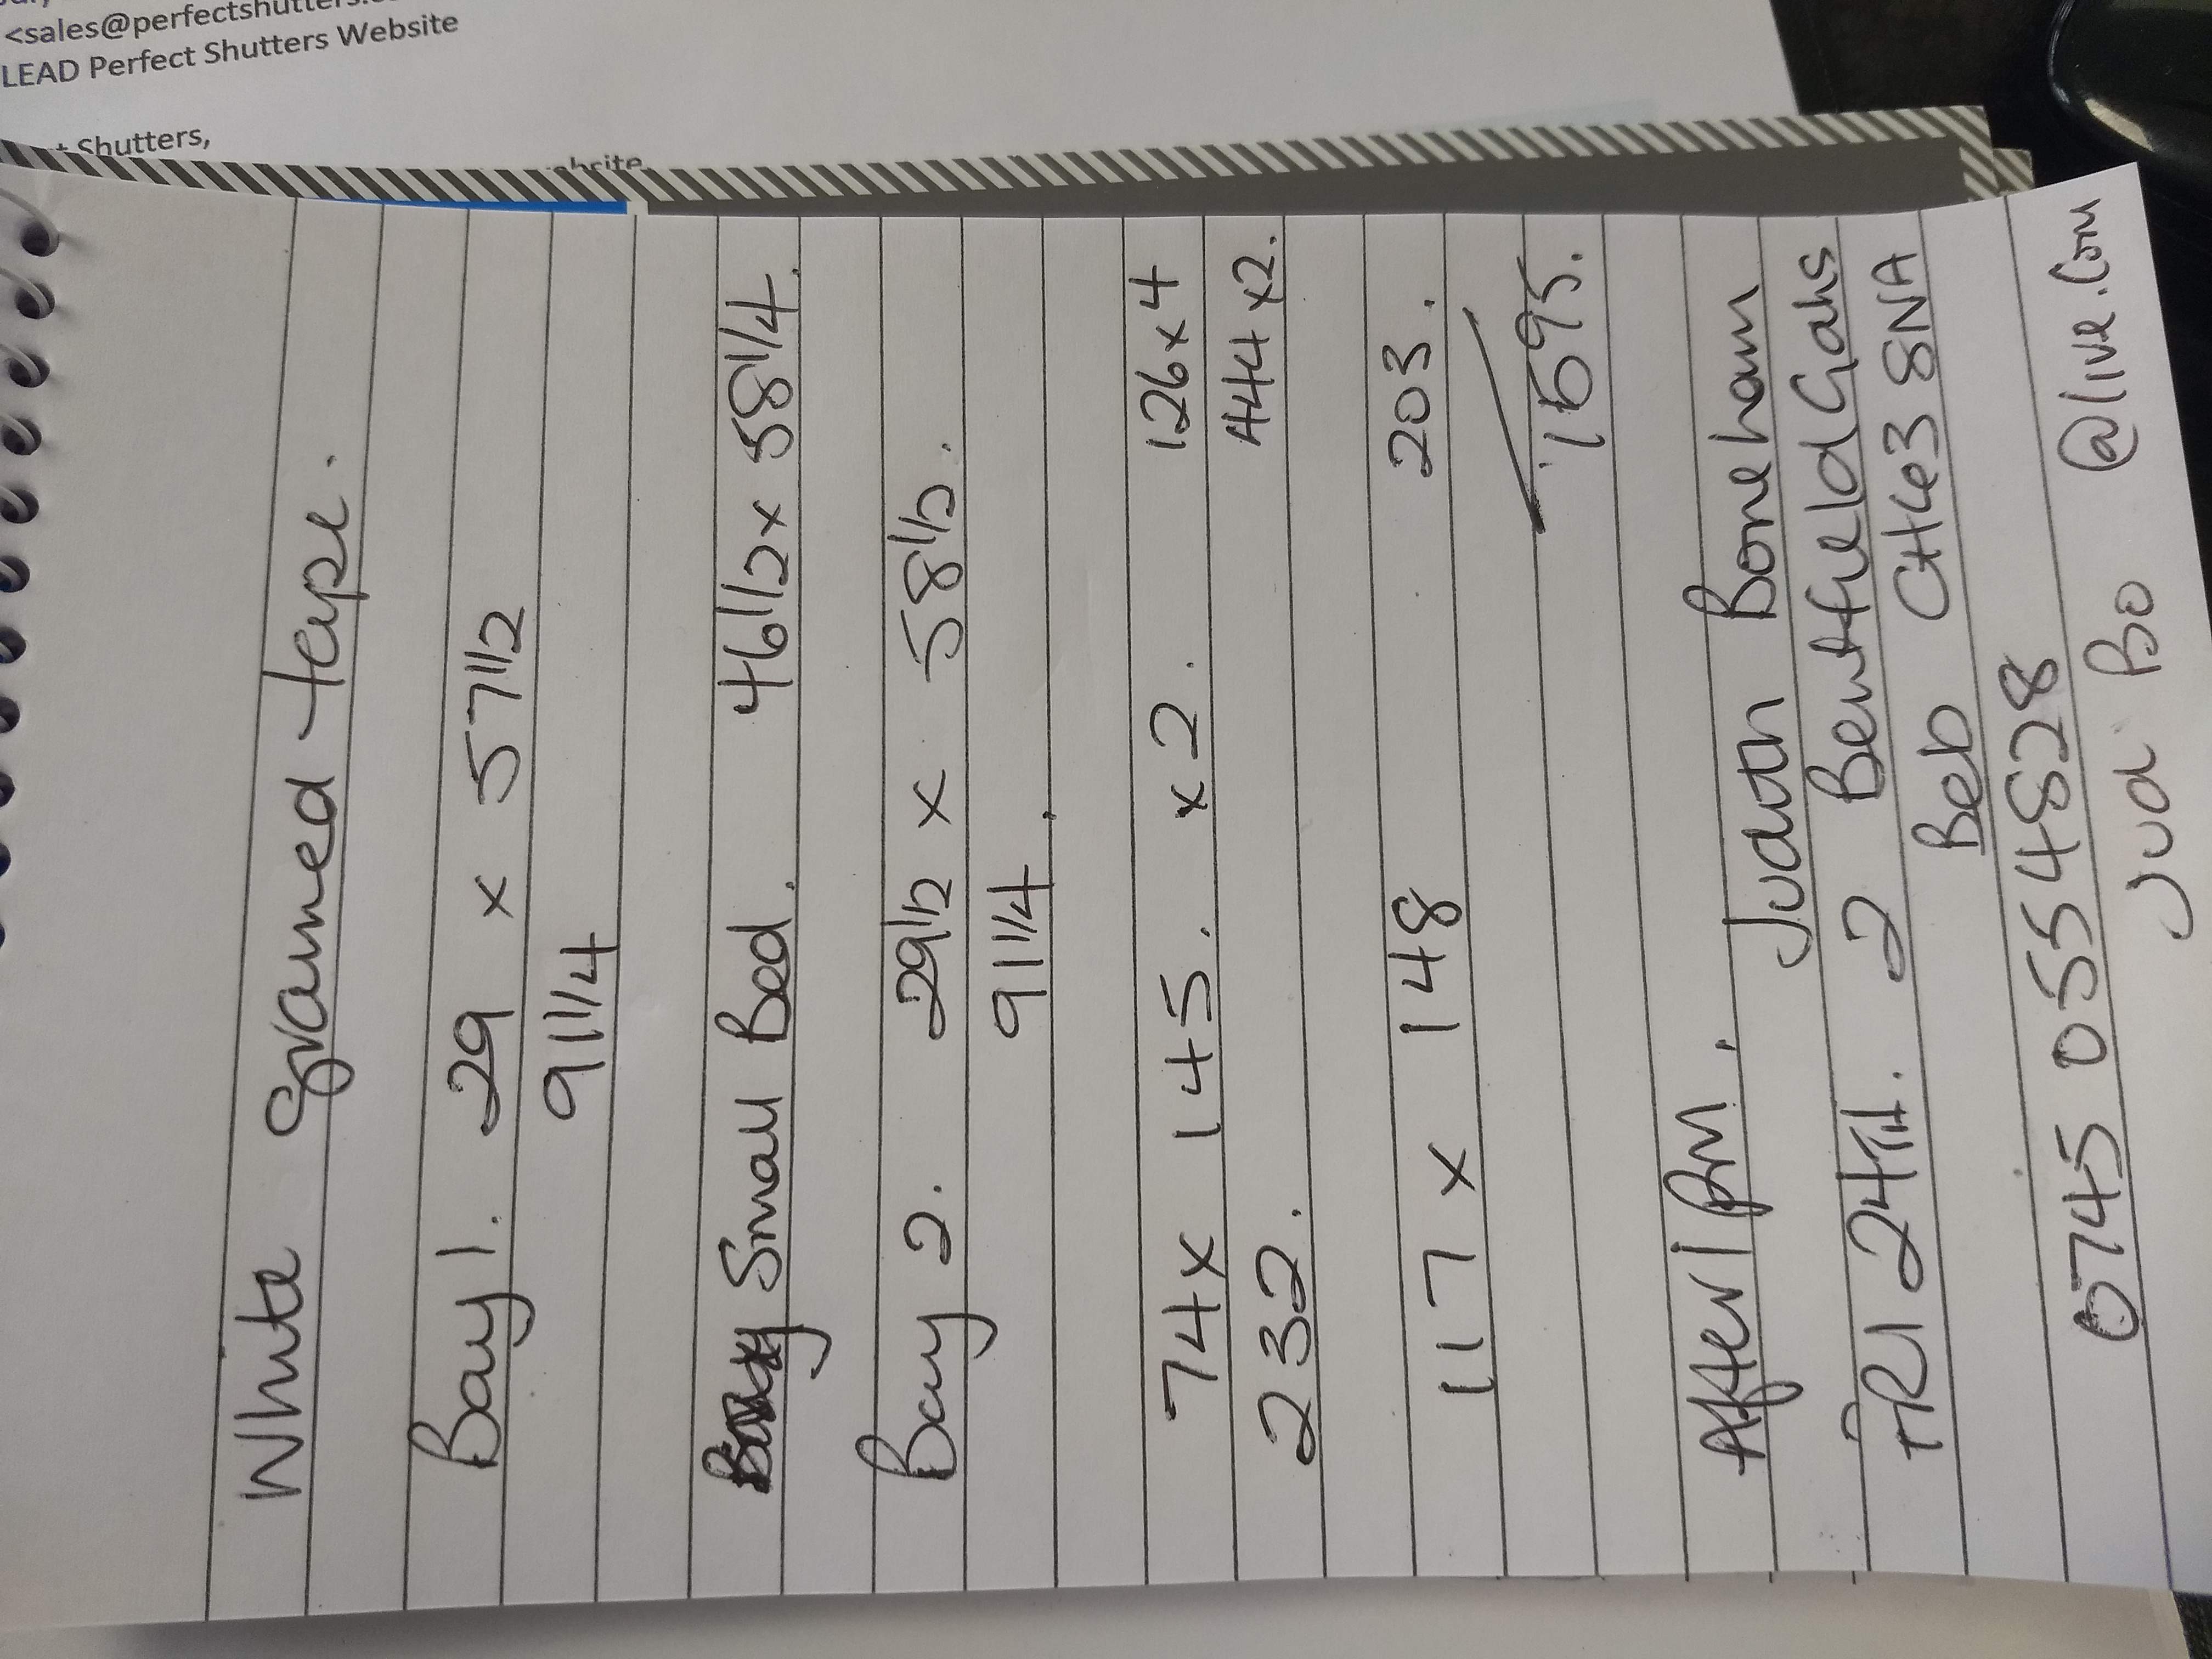 <sales@perfectshutters.c
LEAD Perfect Shutters Website
t Shutters,
ebsite
White grained tape.
Bay 1. 29 x 57 1/2
91 1/4
Small Bed. 46 1/2 x 58 1/4.
Bay 2. 29 1/2 x 58 1/2.
91 1/4
74 x 145. x 2. 126 x 4
232. 444 x 2.
117 x 148 203.
1595.
After 1 pm. Judith Boneham
FRI 24th. 2 Bentfield Gdns
Beb CH63 8NA
0745 0554828
Jud Bo @live.com